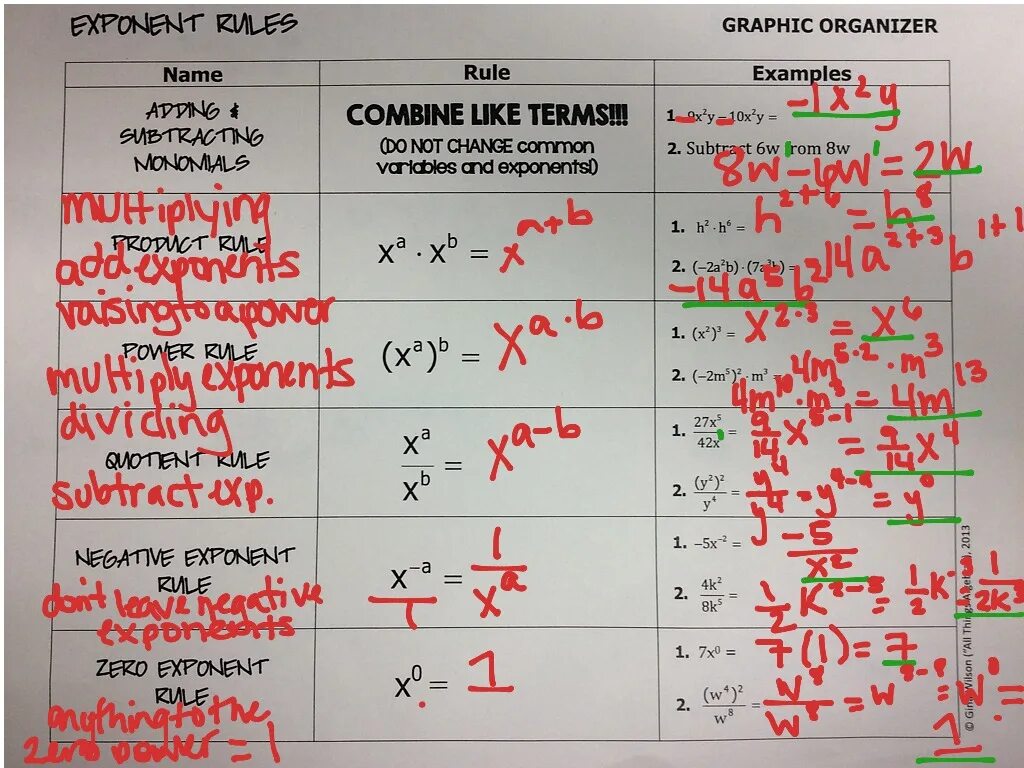 EXPONENT RULES
GRAPHIC ORGANIZER
Name
Rule
Examples
ADDING &
SUBTRACTING
MONOMIALS
COMBINE LIKE TERMS!!!
(DO NOT CHANGE common
variables and exponents!)
1. 9x²y – 10x²y = -1x²y
2. Subtract 6w from 8w
8w¹ - 6w¹ = 2w
multiplying
PRODUCT RULE
add exponents
xᵃ · xᵇ = xᵃ⁺ᵇ
1. h² · h⁶ = h²⁺⁶ = h⁸
2. (–2a²b) · (7a³b) = 14a²⁺³ b¹⁺¹
-14a⁵b²
raising to a power
POWER RULE
multiply exponents
(xᵃ)ᵇ = x^(a·b)
1. (x²)³ = x^(2·3) = x⁶
2. (–2m⁵)² · m³ = 4m^(5·2) · m³
4m¹⁰ · m³ = 4m¹³
dividing
QUOTIENT RULE
subtract exp.
xᵃ/xᵇ = xᵃ⁻ᵇ
1. 27x⁵/42x = 9/14 x⁵⁻¹ = 9/14 x⁴
2. (y²)²/y⁴ = y⁴/y⁴ = y⁴⁻⁴ = y⁰
NEGATIVE EXPONENT
RULE
don't leave negative
exponents
x⁻ᵃ/1 = 1/xᵃ
1. –5x⁻² = -5/x²
2. 4k²/8k⁵ = 1/2 k²⁻⁵ = 1/2 k⁻³ = 1/2k³
ZERO EXPONENT
RULE
anything to the
zero power = 1
x⁰ = 1
1. 7x⁰ = 7(1) = 7
2. (w⁴)²/w⁸ = w⁸/w⁸ = w⁸⁻⁸ = w⁰ =
1